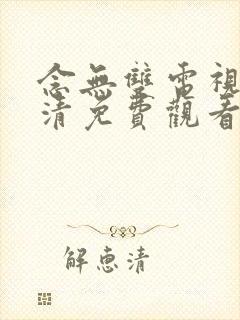 念無雙電視
清免費觀看
解惠清